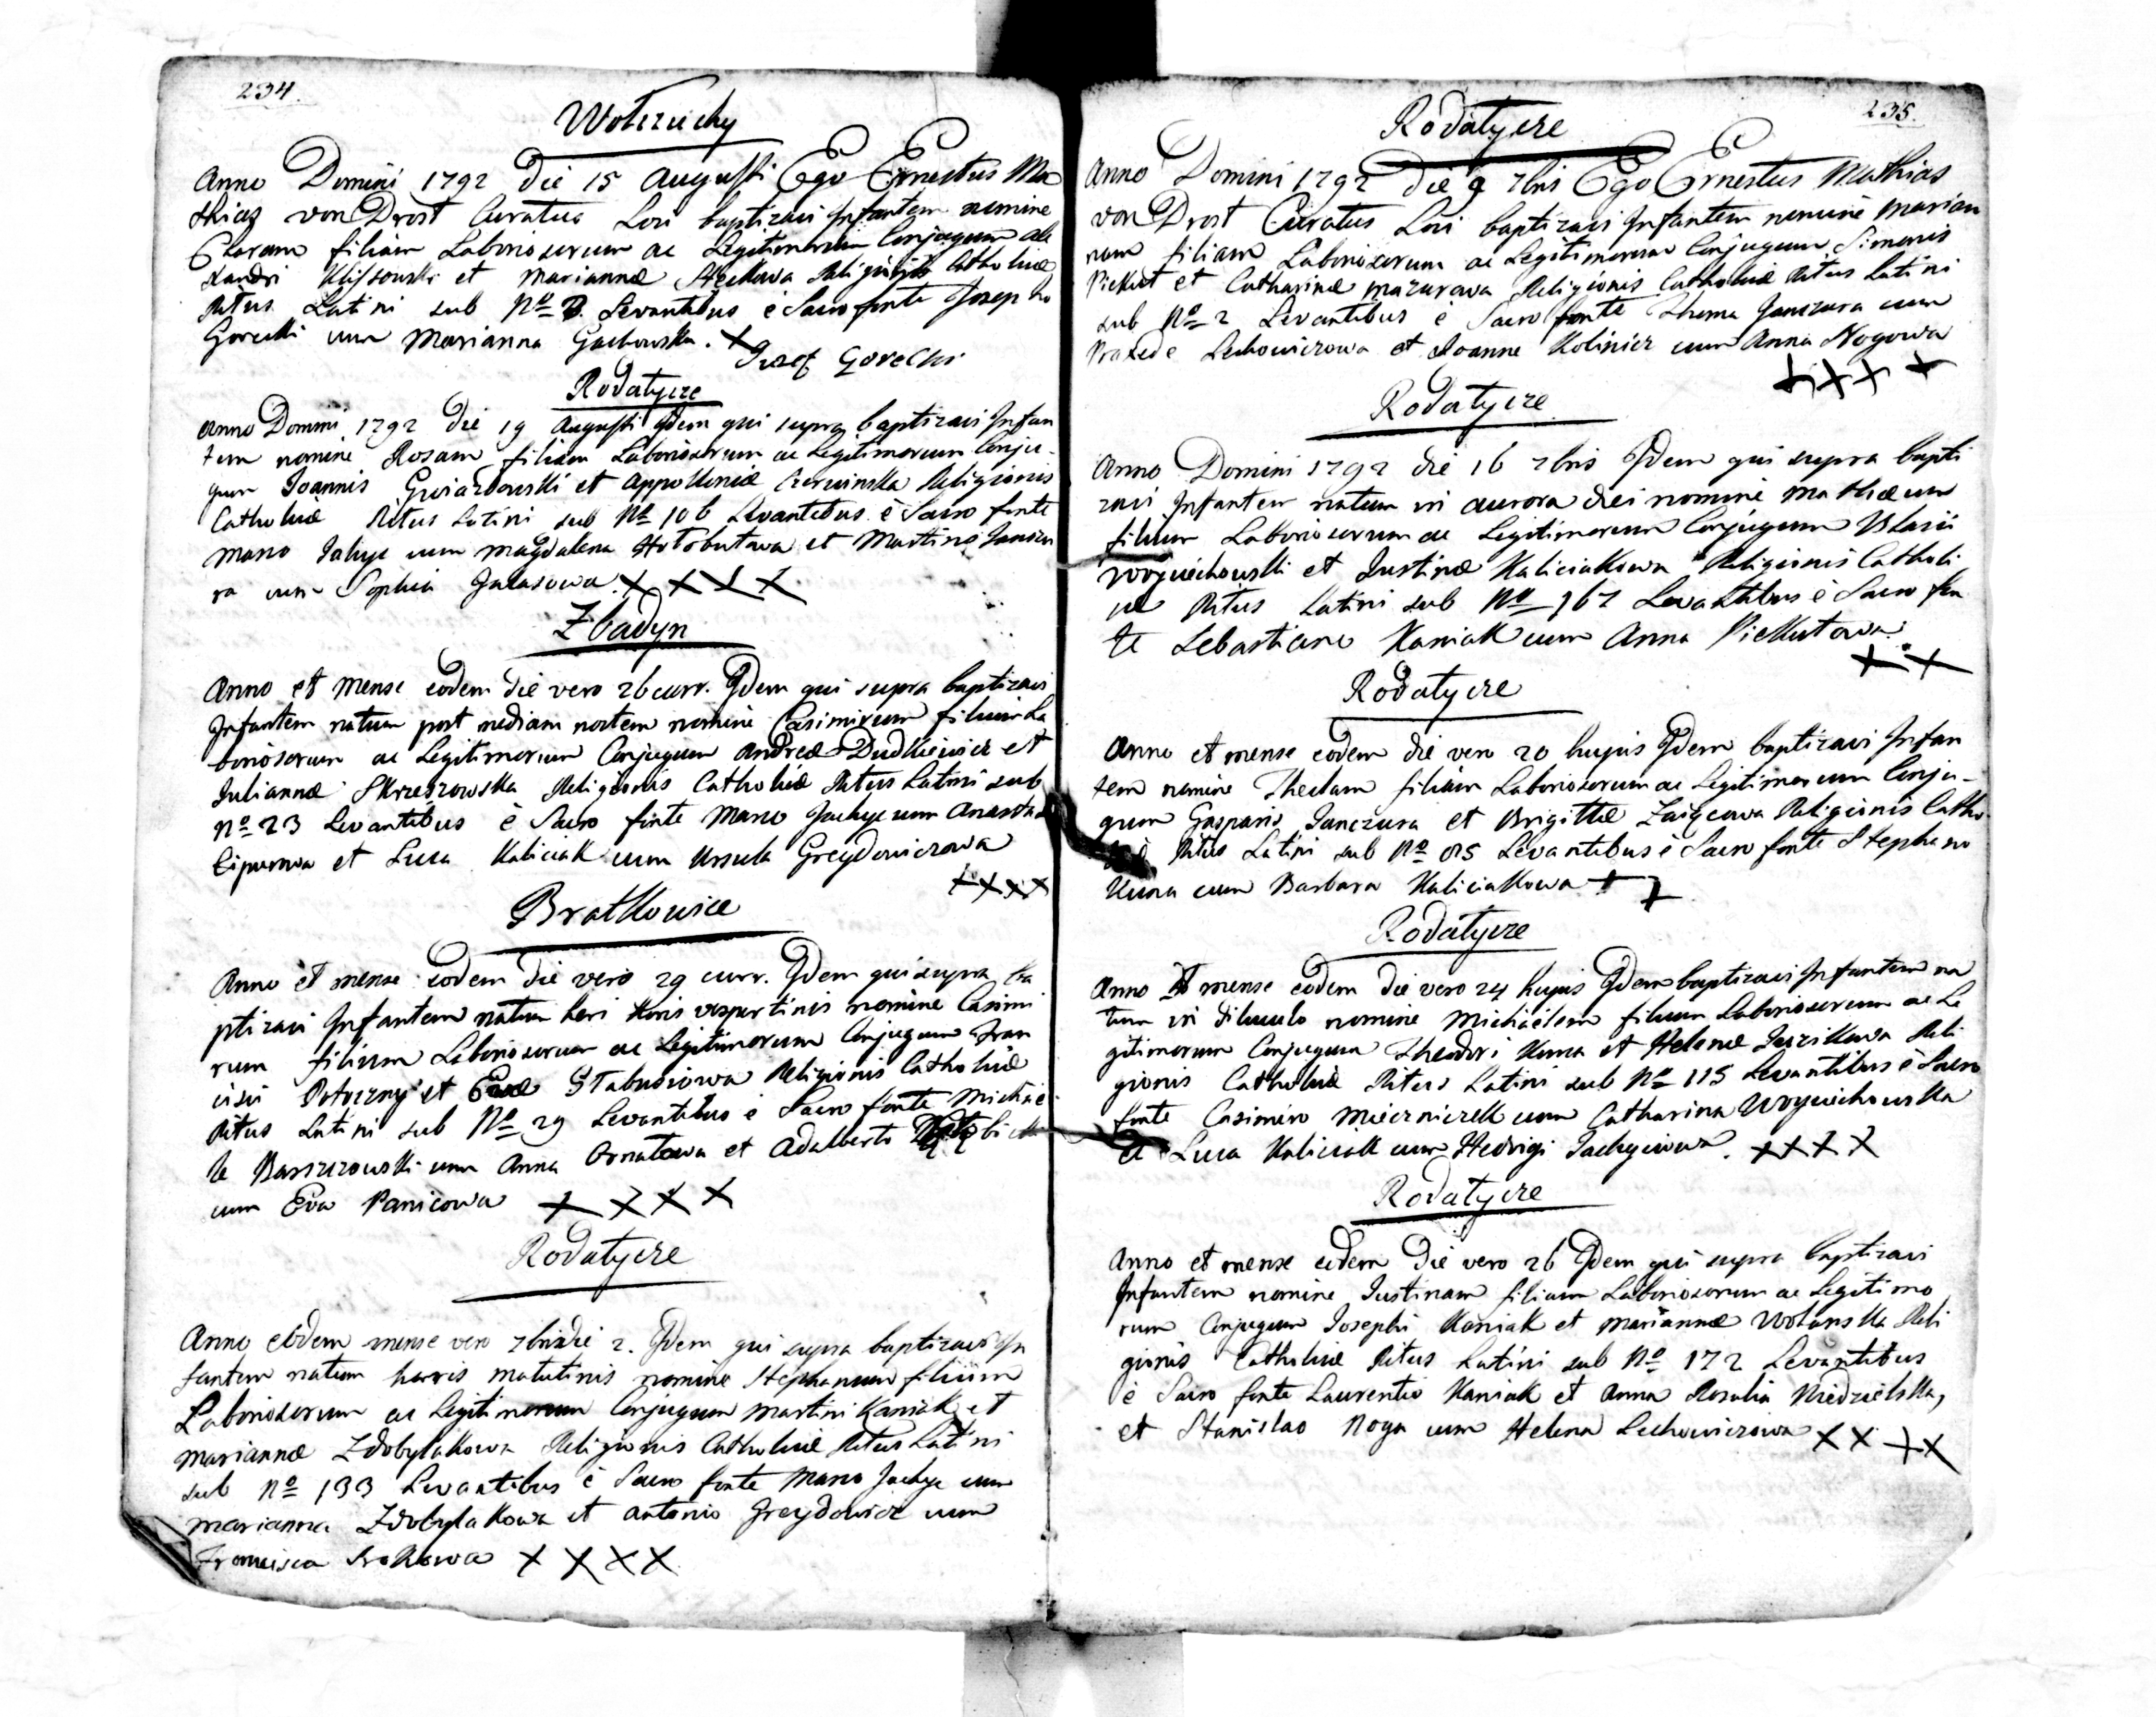 234.
Wołczuchy
Anno Domini 1792 die 15 Augusti Ego Ernestus Ma
thias von Drost Curatus Loci baptizavi Infantem nomine
Claram filiam Laboriosorum ac Legitimorum Conjugum Ale
xandri Klissowski et Mariannæ Religionis Catholicæ
Ritus Latini sub Nº Levantibus è Sacro fonte Josepho
Gorecki cum Marianna Gachowska. X
Jozef Gorecki
Rodatycze
Anno Domini 1792 die 19 Augusti Idem qui supra baptizavi Infan
tem nomine Rosam filiam Laboriosorum ac Legitimorum Conju-
gum Joannis Gwiazdowski et Appolloniæ Czerwinska Religionis
Catholicæ Ritus Latini sub Nº 106 Levantibus è Sacro fonte
Marco Jachyc cum Magdalena Hołobutowa et Martino Janczu
ra cum Sophia Galasowa. X X X X
Zbadyn
Anno et Mense eodem die vero 26 curr. Idem qui supra baptizavi
Infantem natum post mediam noctem nomine Casimirum filium La
boriosorum ac Legitimorum Conjugum Andreæ Dudkiewicz et
Juliannæ Skrzeszowska Religionis Catholicæ Ritus Latini sub
Nº 23 Levantibus è Sacro fonte Marco Jachyc cum
et Luca Kaliciak cum Ursula Greydowiczowa
XXXX
Bratkowice
Anno et mense eodem die vero 29 curr. Idem qui supra ba
ptizavi Infantem natum heri horis vespertinis nomine Casimi
rum filium Laboriosorum ac Legitimorum Conjugum Fran
cisci Potoczny et Evæ Stabusiowa Religionis Catholicæ
Ritus Latini sub Nº 29 Levantibus è Sacro fonte Michae
le Barszczowski cum Anna Ornatowa et Adalberto
cum Eva Panicowa X X X X
Rodatycze
Anno eodem mense vero 7bris die 2. Idem qui supra baptizavi In
fantem natum horis matutinis nomine Stephanum filium
Laboriosorum ac Legitimorum Conjugum Martini Kaniak et
Mariannæ Zdobylakowa Religionis Catholicæ Ritus Latini
sub Nº 133 Levantibus è Sacro fonte Marco Jachyc cum
Marianna Zdobylakowa et Antonio Greydowicz cum
Francisca Srokowa X X X X
235.
Rodatycze
Anno Domini 1792 die 9 7bris Ego Ernestus Mathias
von Drost Curatus Loci baptizavi Infantem nomine Marian
nam filiam Laboriosorum ac Legitimorum Conjugum Simonis
Piekut et Catharinæ Mazurowa Religionis Catholicæ Ritus Latini
sub Nº 2 Levantibus è Sacro fonte Thoma Janczura cum
Praxede Lechowiczowa et Joanne Kolinicz cum Anna Nogowa
XXX X
Rodatycze
Anno Domini 1792 die 16 7bris Idem qui supra bapti
zavi Infantem natum in aurora diei nomine Mathæum
filium Laboriosorum ac Legitimorum Conjugum Blasii
Woyciechowski et Justinæ Kaliciakowa Religionis Catholi
cæ Ritus Latini sub Nº 167 Levantibus è Sacro fon
te Sebastiano Kaniak cum Anna Piekutowa.
X X
Rodatycze
Anno et mense eodem die vero 20 hujus Idem baptizavi Infan
tem nomine Theclam filiam Laboriosorum ac Legitimorum Conju-
gum Gasparis Janczura et Brigittæ Zaiącowa Religionis Catho-
Ritus Latini sub Nº Levantibus è Sacro fonte Stephano
Kuna cum Barbara Kaliciakowa X X
Rodatycze
Anno et mense eodem die vero 24 hujus Idem baptizavi Infantem na
tum in diluculo nomine Michaëlem filium Laboriosorum ac Le
gitimorum Conjugum Theodori Kuna et Helenæ Reli
gionis Catholicæ Ritus Latini sub Nº 115 Levantibus è Sacro
fonte Casimiro Mierniczek cum Catharina Woyciechowska
et Luca Kaliciak cum Hedvigi Jachyciowa. XXXX
Rodatycze
Anno et mense eodem die vero 26 Idem qui supra baptizavi
Infantem nomine Justinam filiam Laboriosorum ac Legitimo
rum Conjugum Josephi Kaniak et Mariannæ Wolanska Reli
gionis Catholicæ Ritus Latini sub Nº 172 Levantibus
è Sacro fonte Laurentio Kaniak et Anna Rosalia Niedzielska,
et Stanislao Noga cum Helena Lechowiczowa X X X X